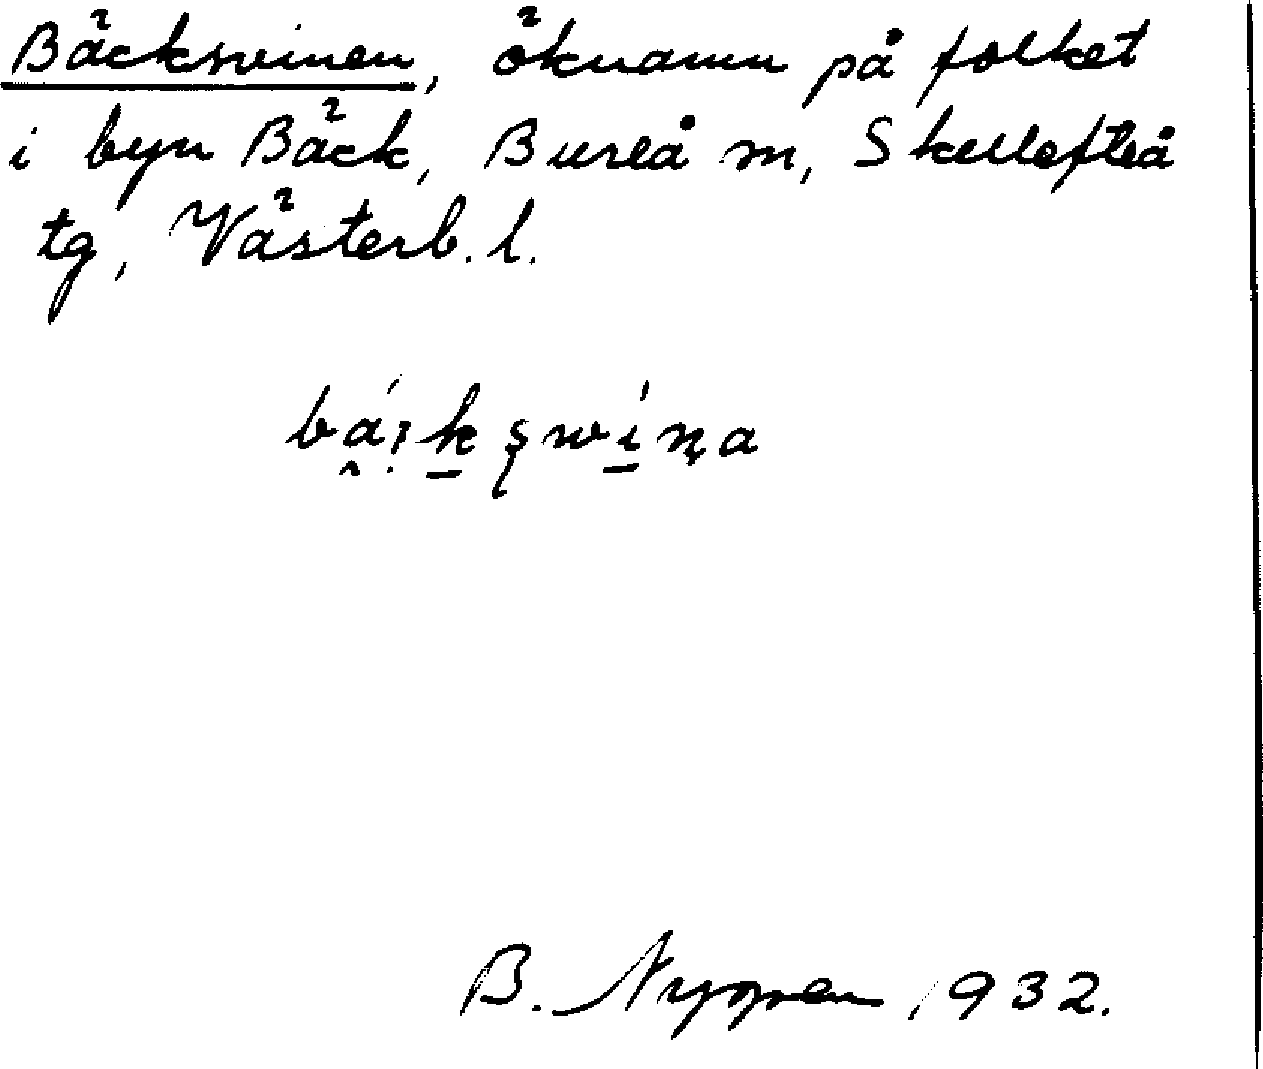 Bäcksvinen, öknamn på folket
i byn Bäck, Bureå m, Skellefteå
tg, Västerb. l.
B. Nygren 1932.